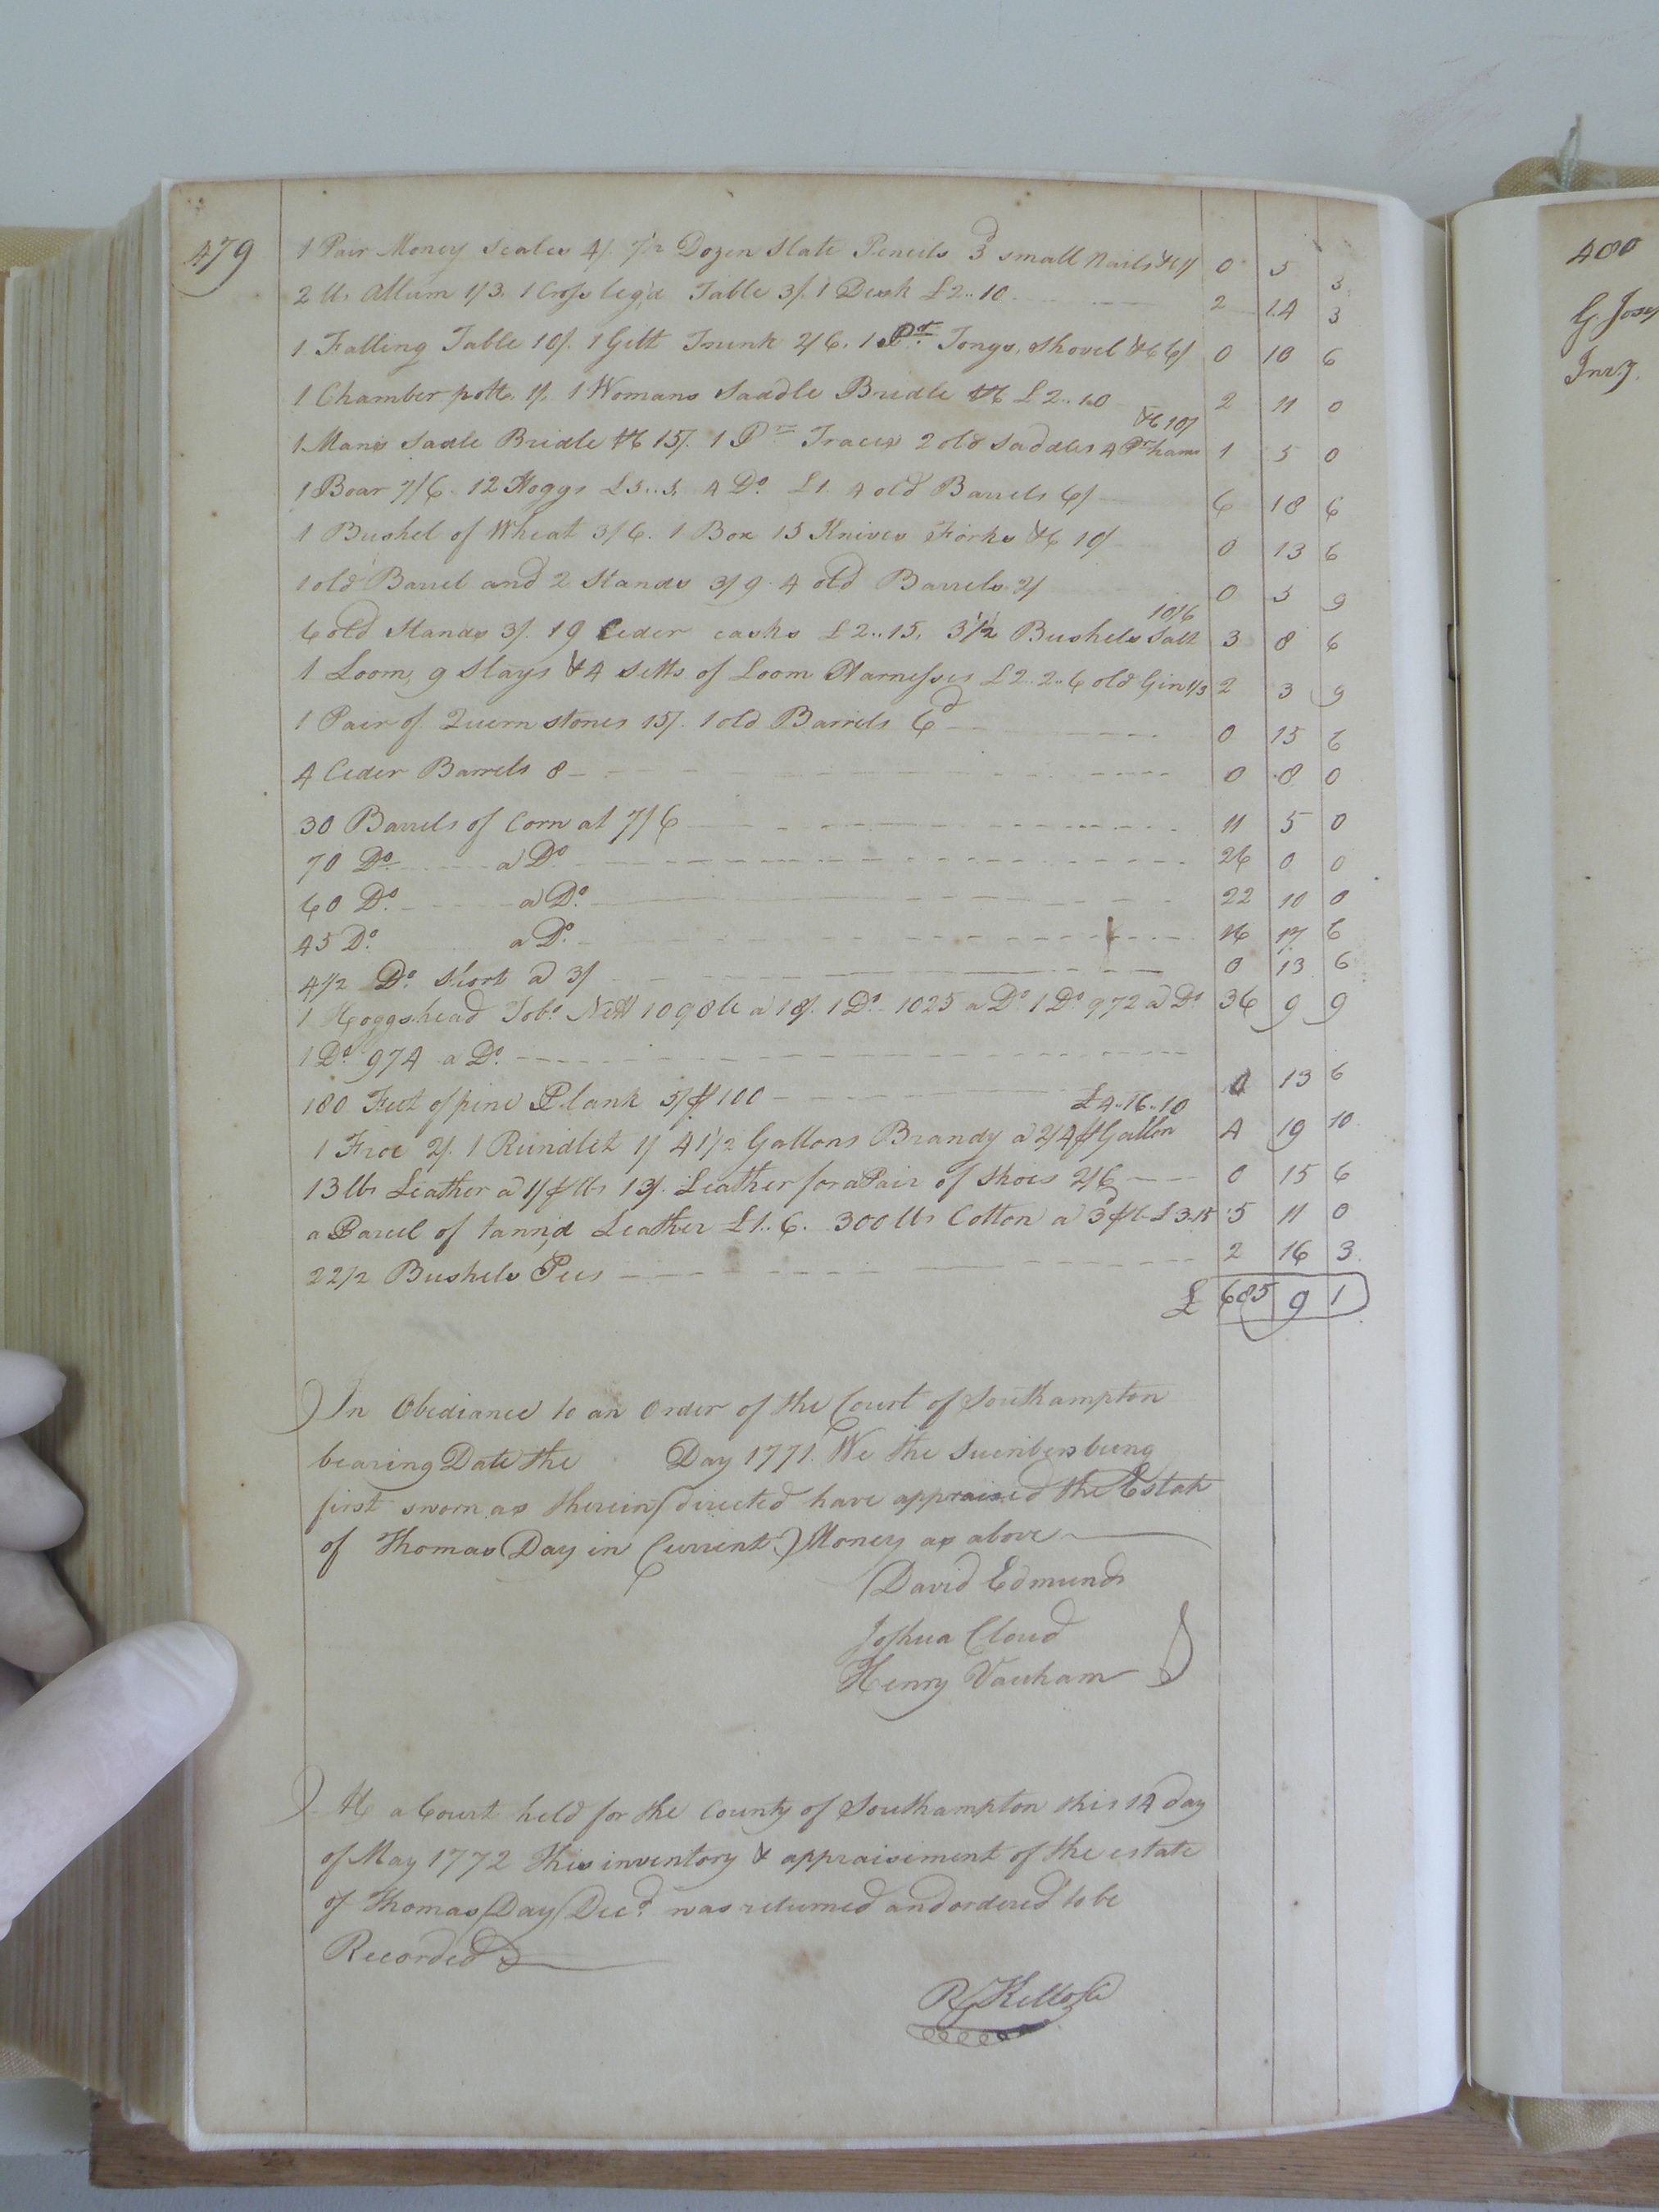 479
1 Pair Money Scales 4/. 1/2 Dozen Slate Pencils 3d small Nails &c 1/ 0 5 3
2 lbs Allum 1/3. 1 Cross leg'd Table 3/. 1 Desk £2..10 2 14 3
1 Falling Table 10/. 1 Gilt Trunk 2/6. 1 Pr. Tongs, Shovel &c 6/ 0 18 6
1 Chamber pott. 1/. 1 Womans Saddle Bridle &c £2..10 2 11 0
1 Mans Sadle Bridle &c 15/. 1 Pr Traces 2 old Saddles 4 Pr hams &c 10/ 1 5 0
1 Boar 7/6. 12 Hoggs £5..5. 4 Do. £1. 4 old Barrels 6/ 6 18 6
1 Bushel of Wheat 3/6. 1 Box 15 Knives Forks &c 10/ 0 13 6
1 old Barrel and 2 Stands 3/9. 4 old Barrels 2/ 0 5 9
6 old Stands 3/. 19 Ceder casks £2..15. 3 1/2 Bushels Salt 10/6 3 8 6
1 Loom, 9 Slays & 4 Setts of Loom Harnesses £2..2..6 old Gin 1/3 2 3 9
1 Pair of Quern stones 15/. 1 old Barrels 6d 0 15 6
4 Ceder Barrels 8 0 8 0
30 Barrels of Corn at 7/6 11 5 0
70 Do a Do 26 0 0
60 Do. a Do. 22 10 0
45 Do. a Do. 16 17 6
4 1/2 Do. Short a 3/ 0 13 6
1 Hoggshead Tobo. Nett 1098 lb a 18/. 1 Do. 1025 a Do 1 Do. 972 a Do. 36 9 9
1 Do. 974 a Do.
180 Feet of pine Plank 5/ ⅌ 100 0 13 6
1 Froe 2/. 1 Rundlet 1/ 41 1/2 Gallons Brandy a 2/4 ⅌ Gallon £4..16..10 4 19 10
13 lbs Leather a 1/ ⅌ lbs 13/. Leather for a Pair of Shoes 2/6 0 15 6
a Parcel of tann'd Leather £1..6. 300 lbs Cotton a 3d ⅌ lb £3.15 5 11 0
22 1/2 Bushels Pees 2 16 3
£ 685 9 1
In Obediance to an Order of the Court of Southampton
bearing Date the Day 1771. We the Sucribers being
first sworn as therein directed have appraised the Estate
of Thomas Day in Current Money as above
David Edmunds
Joshua Cloud
Henry Vauham
At a Court held for the County of Southampton this 14 day
of May 1772 This inventory & appraisement of the estate
of Thomas Day Decd. was returned and ordered to be
Recorded
R Kello
480
G. Jose
Inv.y.